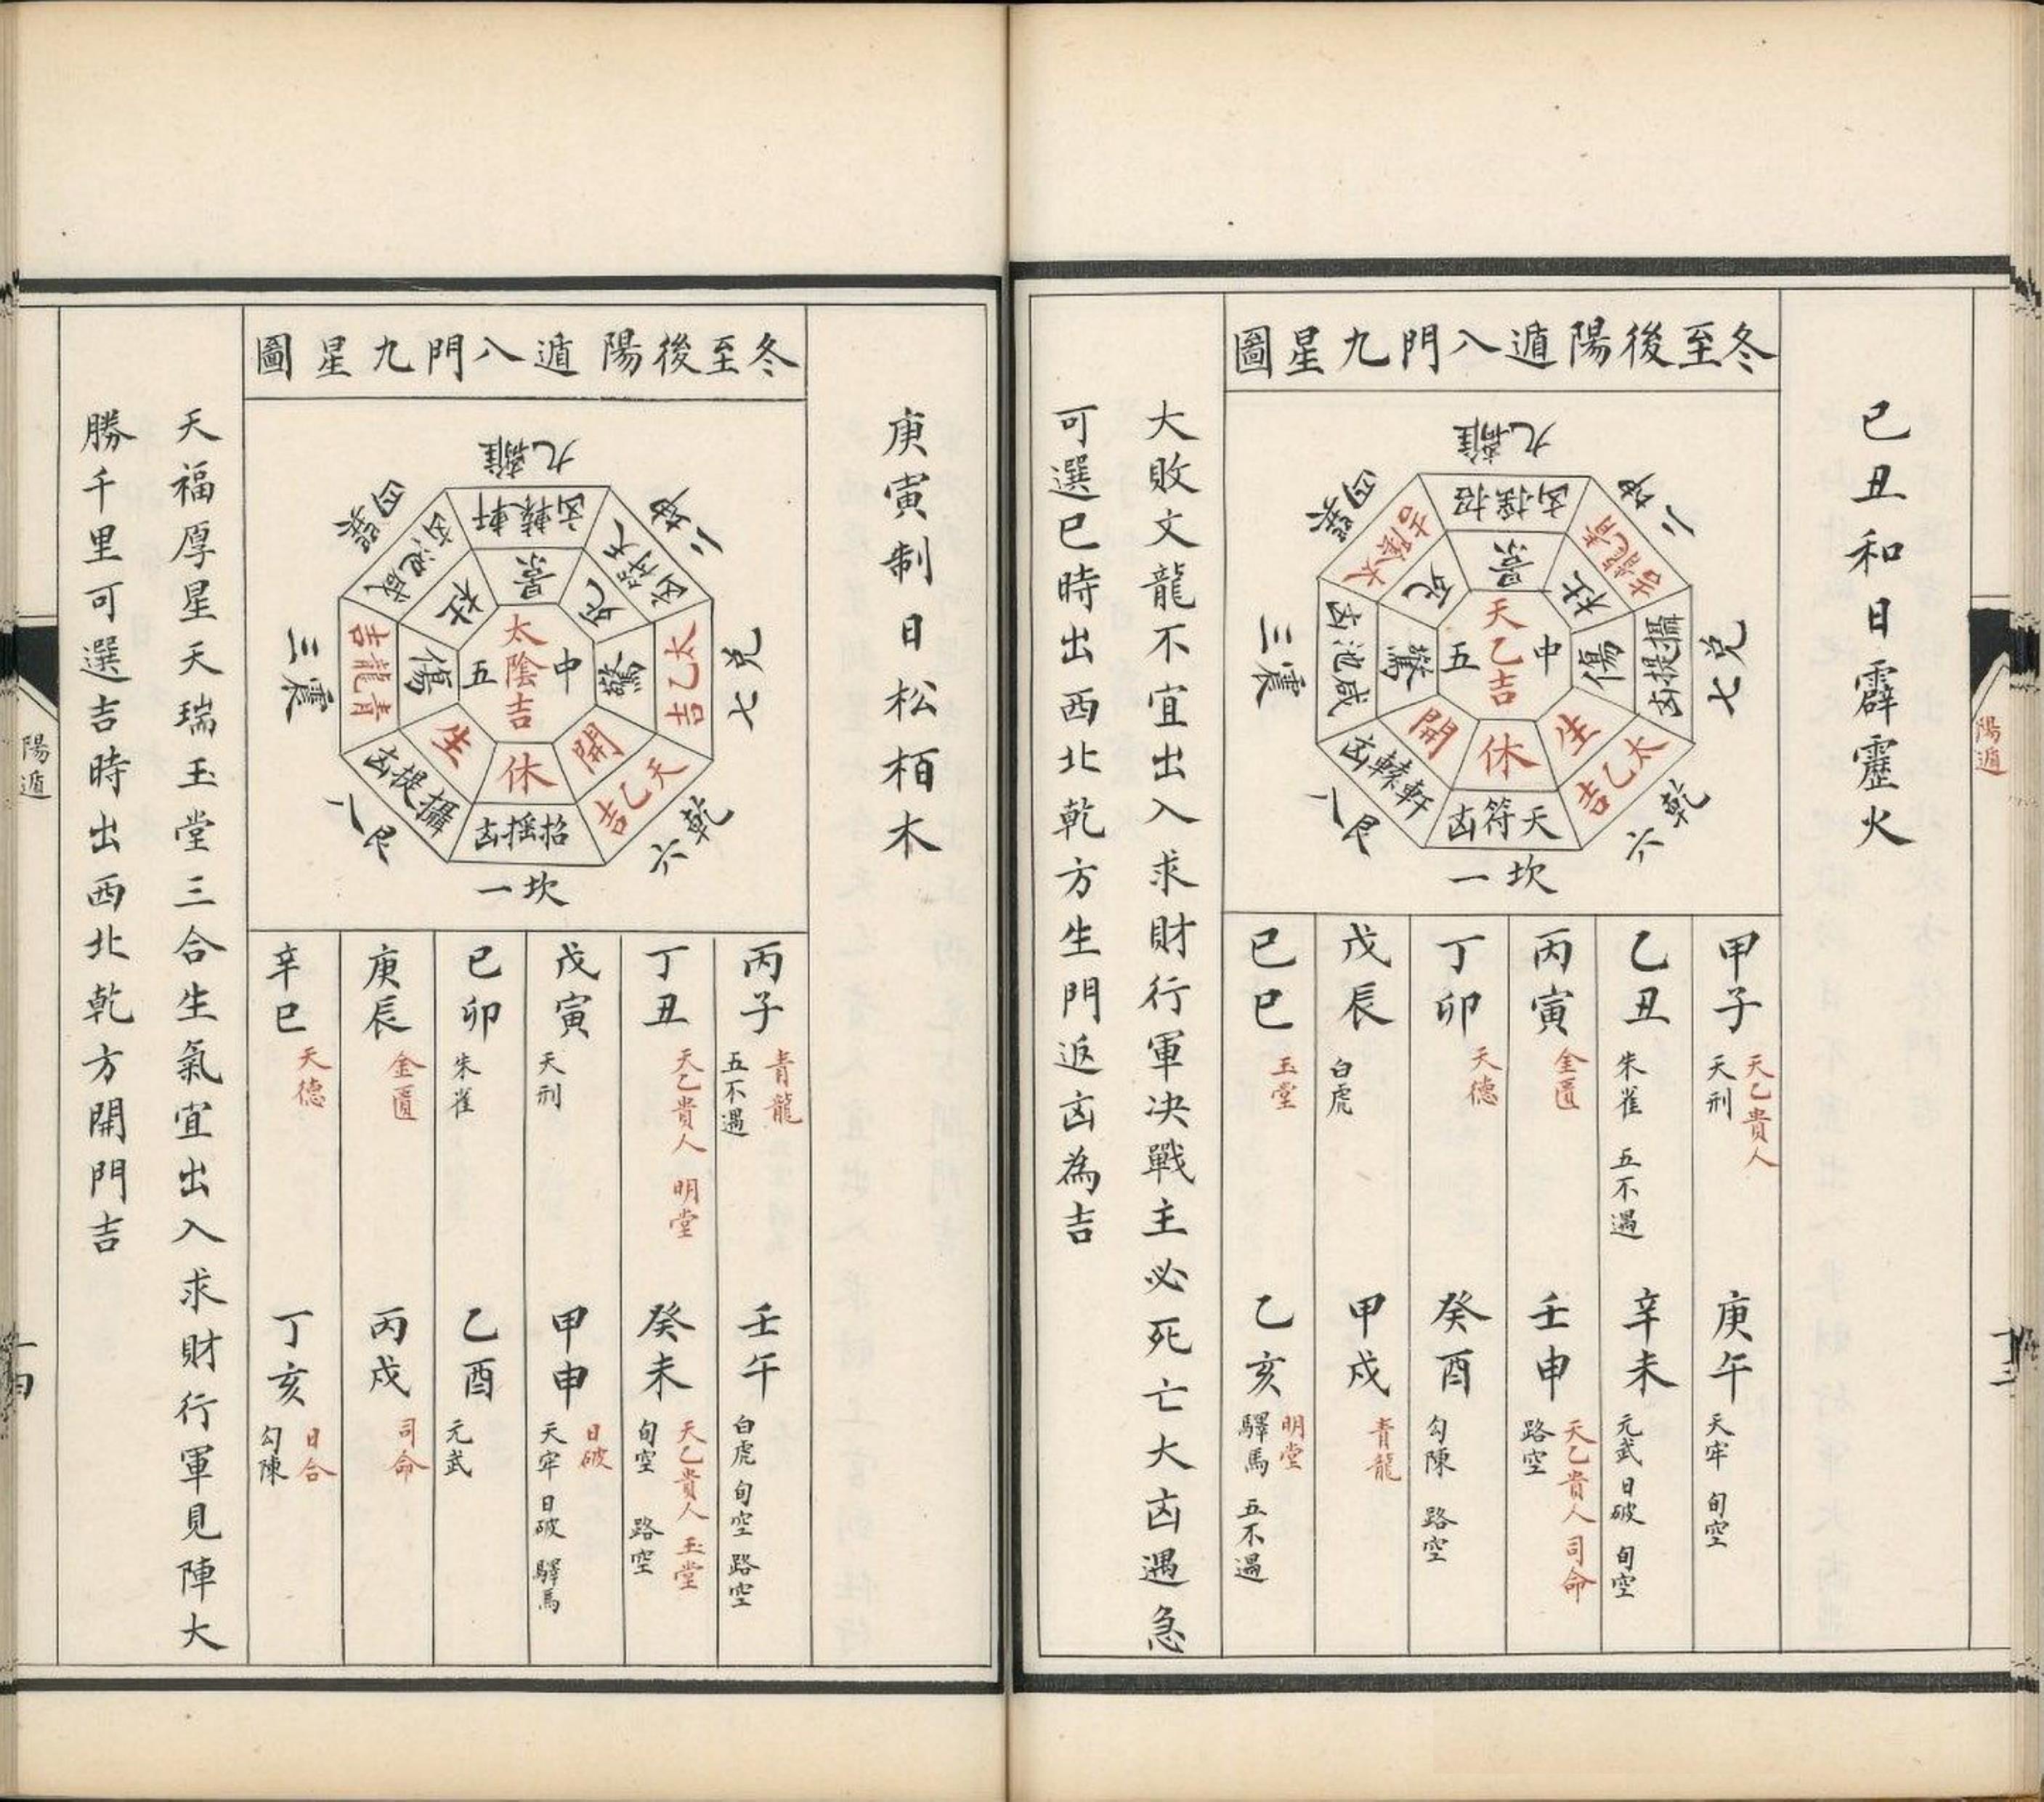 陽遁
己丑和日霹靂火
冬至後陽遁八門九星圖
九離
招搖凶
景
二坤
青龍吉
杜
七兌
攝提凶
傷
六乾
太乙吉
生
一坎
天符凶
休
八艮
軒轅凶
開
三震
咸池凶
驚
四巽
太陰吉
死
中
天乙吉
五
甲子
天乙貴人
天刑
庚午
天牢 旬空
乙丑
朱雀 五不遇
辛未
元武 日破 旬空
丙寅
金匱
壬申
天乙貴人 司命
路空
丁卯
天德
癸酉
勾陳 路空
戊辰
白虎
甲戌
青龍
己巳
玉堂
乙亥
明堂
驛馬 五不遇
大敗文龍不宜出入求財行軍决戰主必死亡大凶遇急
可選巳時出西北乾方生門返凶為吉
庚寅制日松栢木
冬至後陽遁八門九星圖
九離
軒轅凶
景
二坤
天符凶
死
七兌
太乙吉
驚
六乾
天乙吉
開
一坎
招搖凶
休
八艮
攝提凶
生
三震
青龍吉
傷
四巽
咸池凶
杜
中
太陰吉
五
丙子
青龍
五不遇
壬午
白虎 旬空 路空
丁丑
天乙貴人 明堂
癸未
天乙貴人 玉堂
旬空 路空
戊寅
天刑
甲申
日破
天牢 日破 驛馬
己卯
朱雀
乙酉
元武
庚辰
金匱
丙戌
司命
辛巳
天德
丁亥
日合
勾陳
天福厚星天瑞玉堂三合生氣宜出入求財行軍見陣大
勝千里可選吉時出西北乾方開門吉
陽遁